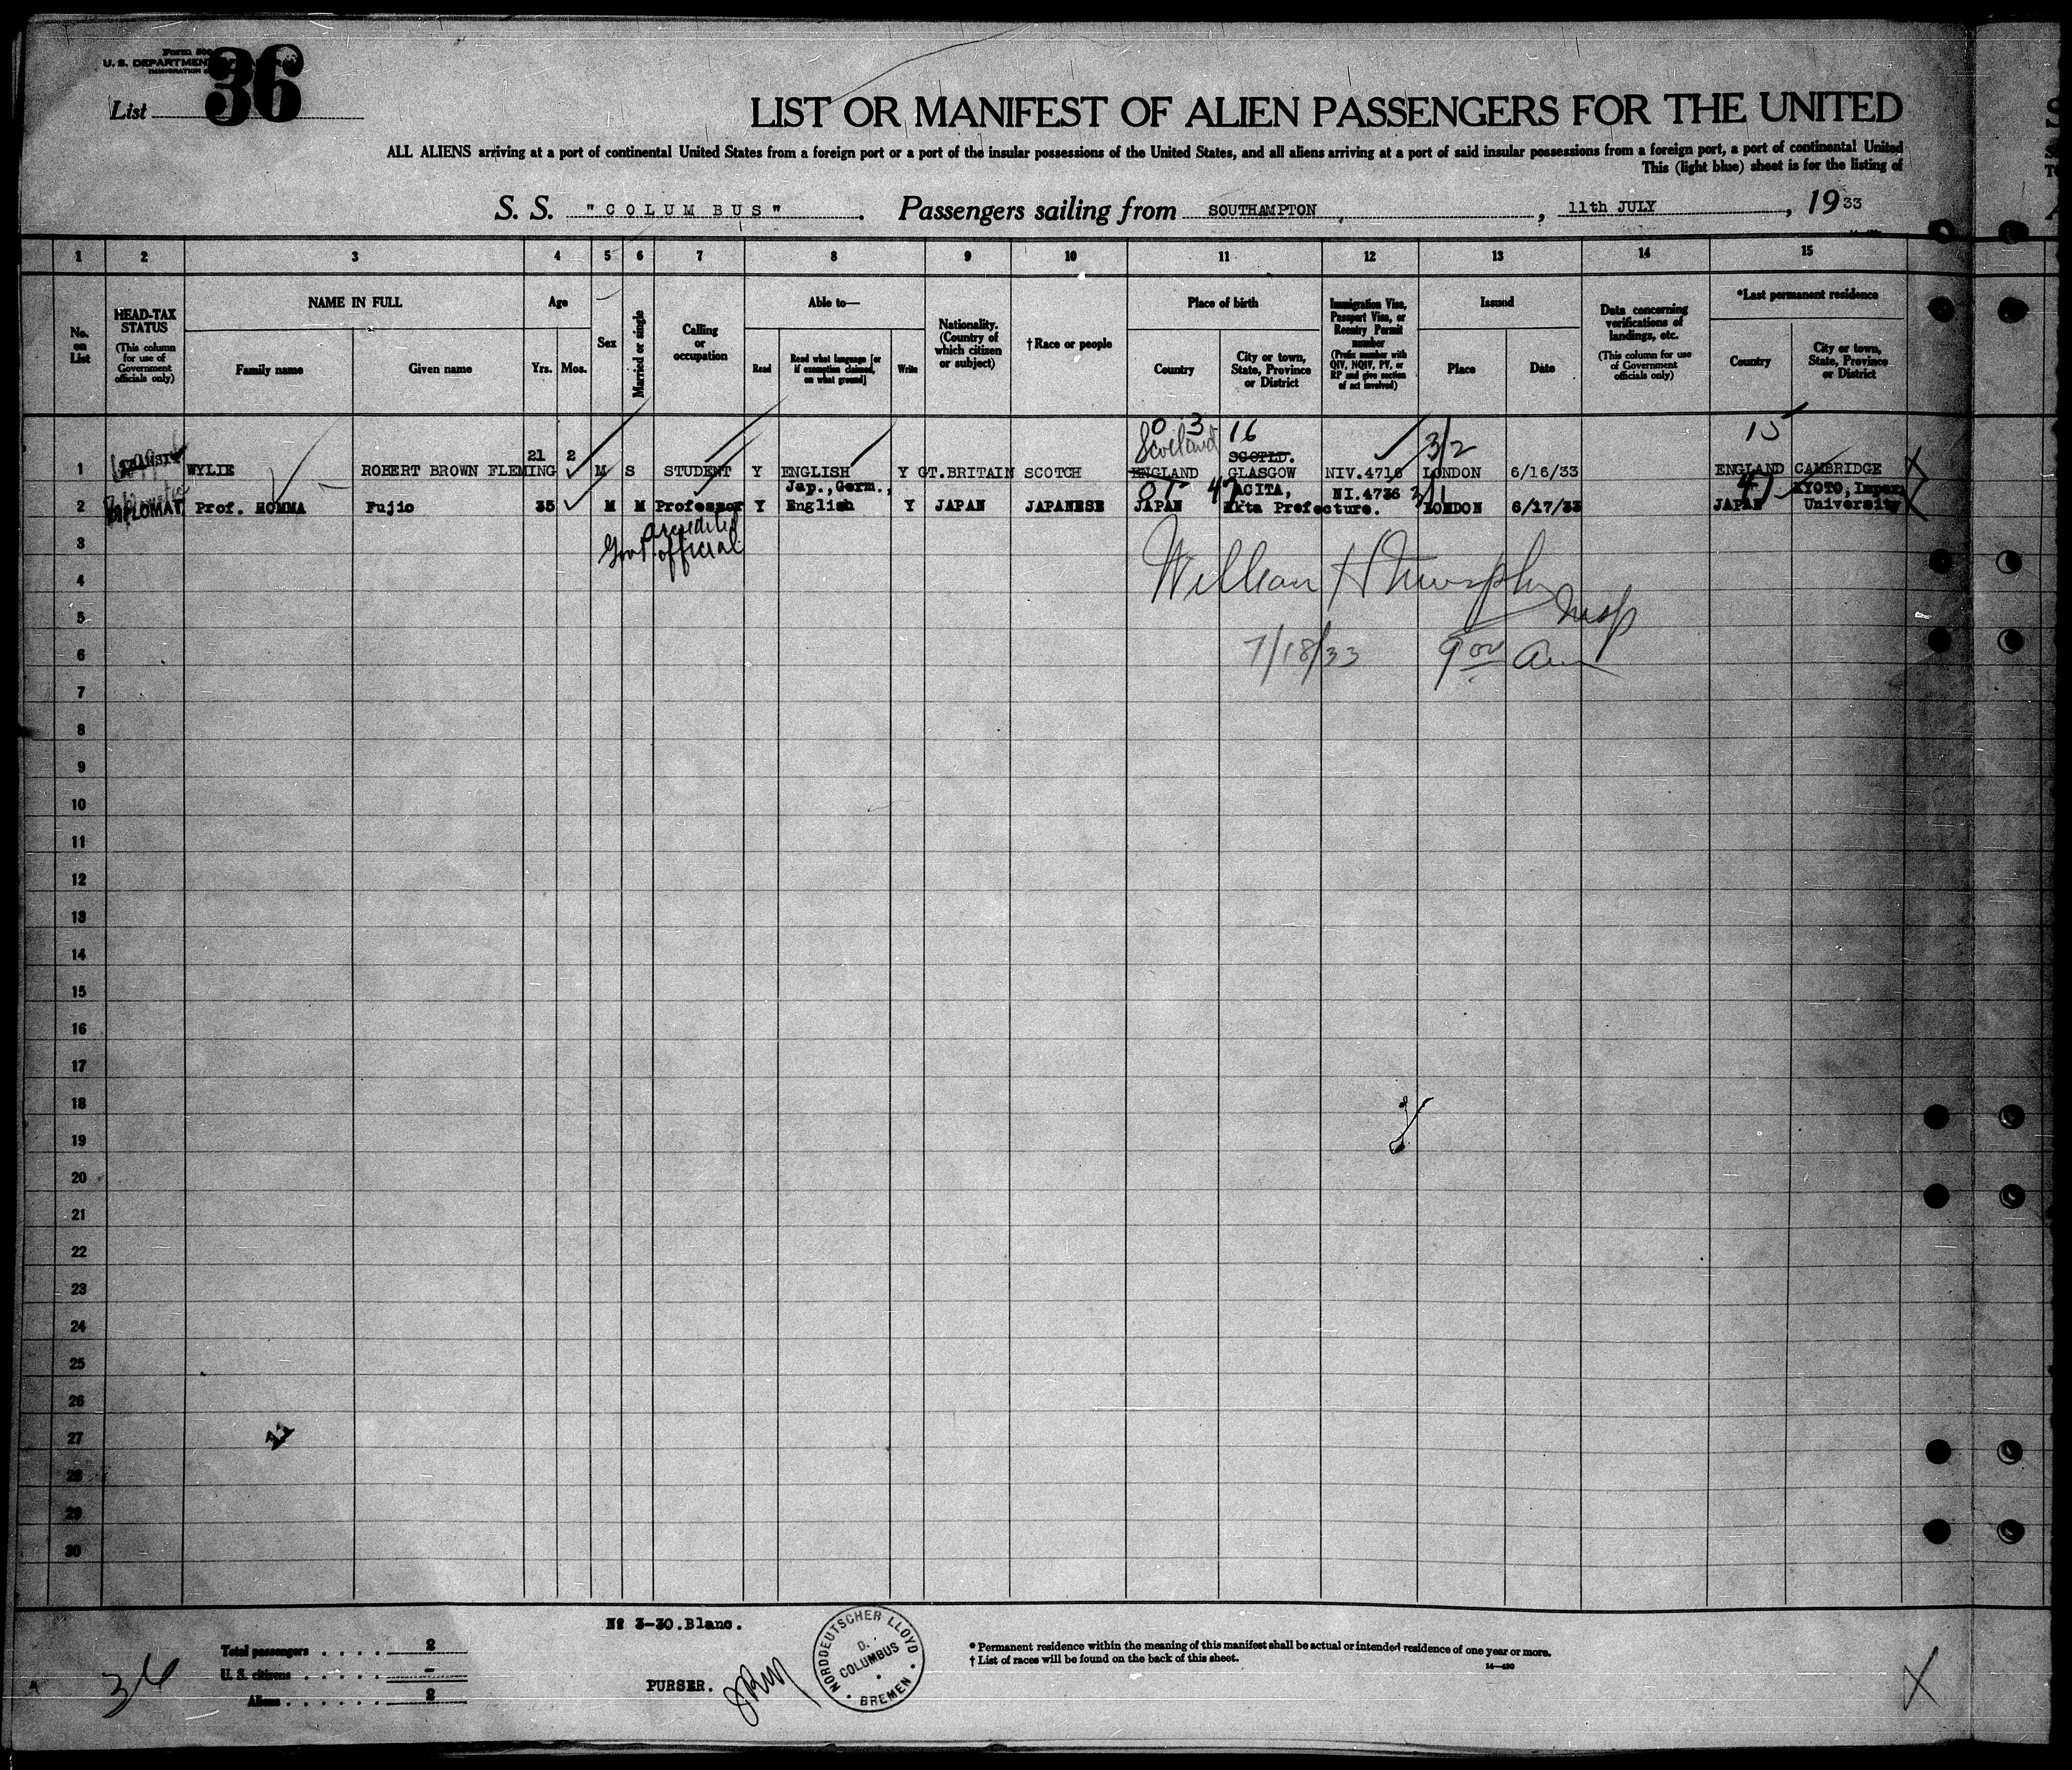 Form 500
U. S. DEPARTMENT
IMMIGRATION
List 36
LIST OR MANIFEST OF ALIEN PASSENGERS FOR THE UNITED
ALL ALIENS arriving at a port of continental United States from a foreign port or a port of the insular possessions of the United States, and all aliens arriving at a port of said insular possessions from a foreign port, a port of continental United
This (light blue) sheet is for the listing of
S. S. "COLUMBUS". Passengers sailing from SOUTHAMPTON, 11th JULY, 1933
1 2 3 4 5 6 7 8 9 10 11 12 13 14 15
No. on List
HEAD-TAX STATUS
(This column for use of Government officials only)
NAME IN FULL
Family name
Given name
Age
Yrs. Mos.
Sex
Married or single
Calling or occupation
Able to—
Read
Read what language [or if exemption claimed, on what ground]
Write
Nationality. (Country of which citizen or subject)
†Race or people
Place of birth
Country
City or town, State, Province or District
Immigration Visa, Passport Visa, or Reentry Permit number
(Prefix number with QIV, NQIV, PV, or RP and give section of act involved)
Issued
Place
Date
Data concerning verifications of landings, etc.
(This column for use of Government officials only)
*Last permanent residence
Country
City or town, State, Province or District
0 3 16 15
Scotland 3/2
21 2 SCOTLD.
1 TRANSIT WYLIE ROBERT BROWN FLEMING M S STUDENT Y ENGLISH Y GT.BRITAIN SCOTCH ENGLAND GLASGOW NIV.4716 LONDON 6/16/33 ENGLAND CAMBRIDGE
Jap.,Germ., ACITA, NI.4736 KYOTO, Imper
2 DIPLOMAT Prof. HOMMA Fujio 35 M M Professor Y English Y JAPAN JAPANESE JAPAN Akta Prefecture. LONDON 6/17/33 JAPAN University
accredited
3 Govt official
4 William H Murphy
5 Insp
6 7/18/33 9 00 Am
7
8
9
10
11
12
13
14
15
16
17
18
19
20
21
22
23
24
25
26
27
28
29
30
Nº 3-30.Blanc.
Total passengers . . . . . 2
U. S. citizens . . . . . -
Aliens . . . . . . 2
36
PURSER.
NORDDEUTSCHER LLOYD
D. COLUMBUS
BREMEN
* Permanent residence within the meaning of this manifest shall be actual or intended residence of one year or more.
† List of races will be found on the back of this sheet.
14—430